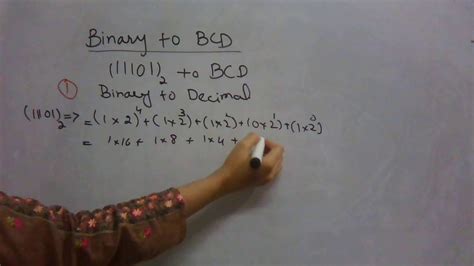 Binary to BCD
(11101)₂ to BCD
① Binary to Decimal
(11101)₂ => = (1×2)⁴ + (1×2³) + (1×2²) + (0×2¹) + (1×2⁰)
= 1×16 + 1×8 + 1×4 +